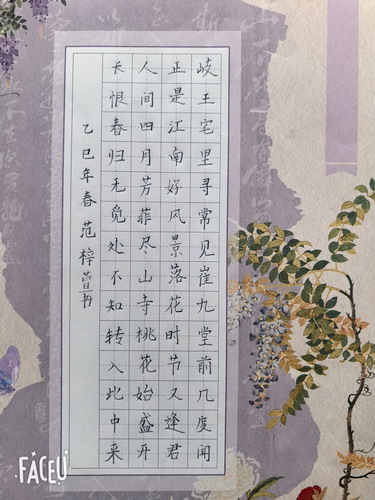 岐王宅里寻常见崔九堂前几度闻
正是江南好风景落花时节又逢君
人间四月芳菲尽山寺桃花始盛开
长恨春归无觅处不知转入此中来
乙巳年春范梓萱书
FACEU